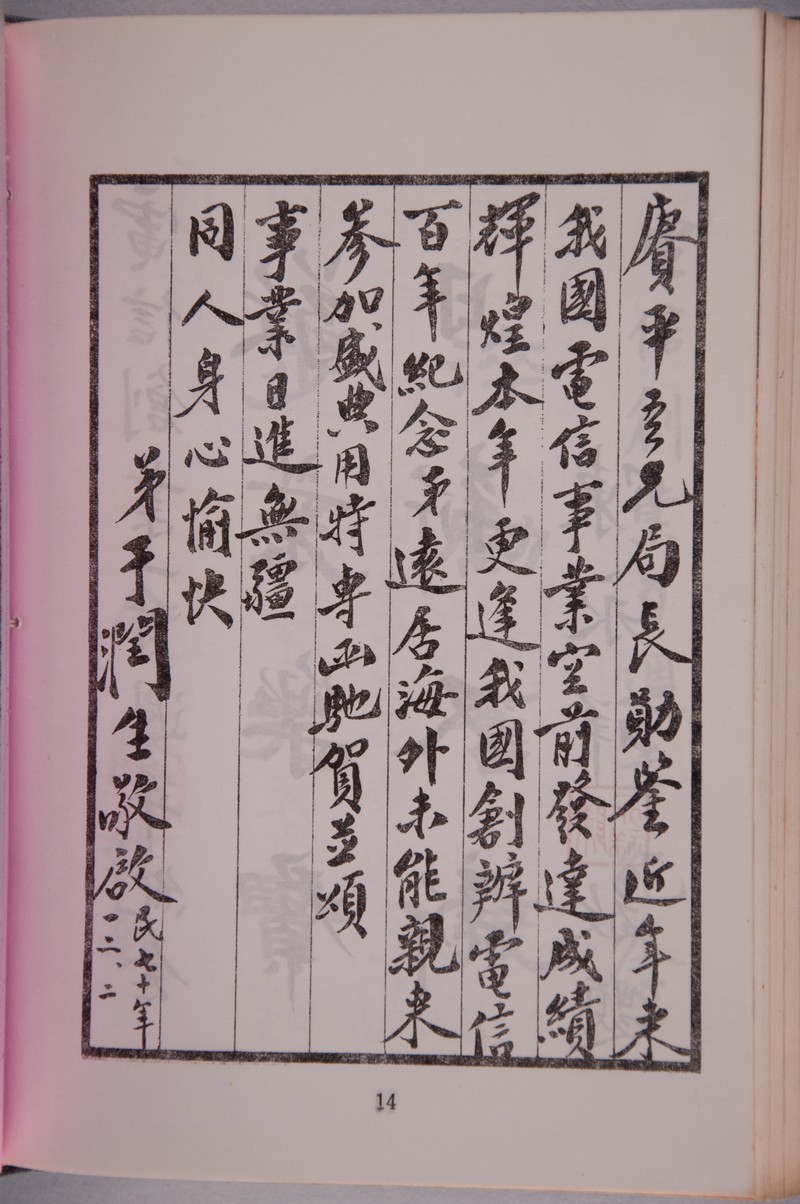 賡平吾兄局長勛鑒近年來
我國電信事業空前發達成績
輝煌本年更逢我國創辦電信
百年紀念弟遠居海外未能親來
參加盛典用特專函馳賀並頌
事業日進無疆
同人身心愉快
弟于潤生敬啟
民七十年
一二、二
14